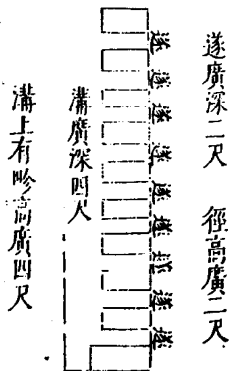 遂廣深二尺　徑高廣二尺
遂遂遂遂遂遂遂遂遂
溝廣深四尺
溝上有畛高廣四尺